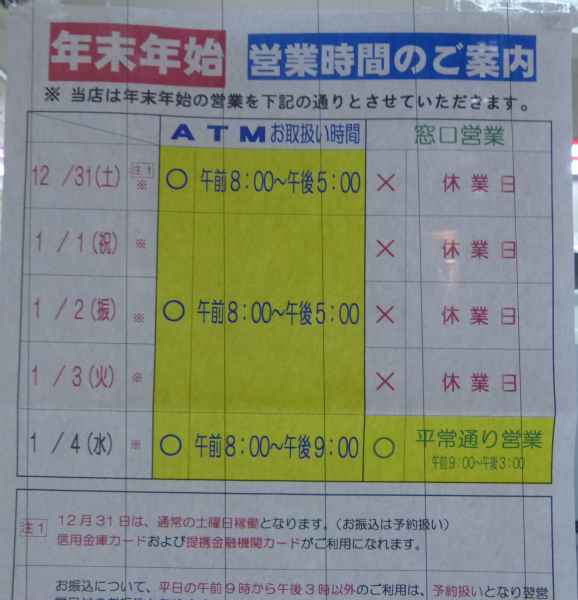 年末年始 営業時間のご案内
※ 当店は年末年始の営業を下記の通りとさせていただきます。
ATMお取扱い時間 窓口営業
12 /31(土) 注1 ※ ○ 午前8:00~午後5:00 × 休業日
1 / 1(祝) ※ × 休業日
1 / 2(振) ※ ○ 午前8:00~午後5:00 × 休業日
1 / 3(火) ※ × 休業日
1 / 4(水) ※ ○ 午前8:00~午後9:00 ○ 平常通り営業
午前9:00~午後3:00
注1 12月31日は、通常の土曜日稼働となります。(お振込は予約扱い)
信用金庫カードおよび提携金融機関カードがご利用になれます。
お振込について、平日の午前9時から午後3時以外のご利用は、予約扱いとなり翌営